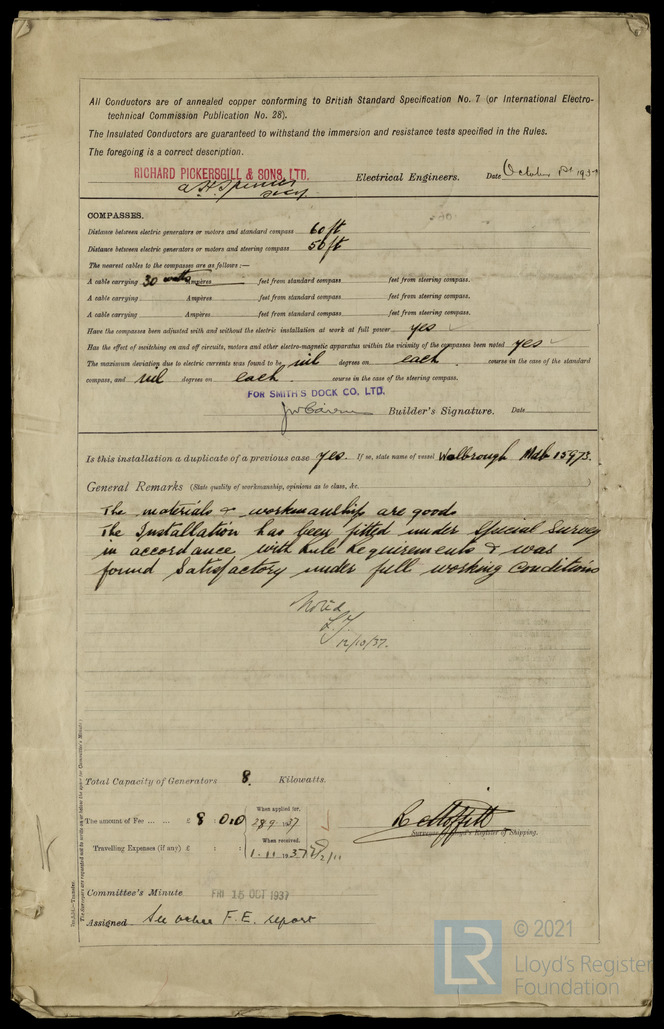 All Conductors are of annealed copper conforming to British Standard Specification No. 7 (or International Electro-
technical Commission Publication No. 28).
The Insulated Conductors are guaranteed to withstand the immersion and resistance tests specified in the Rules.
The foregoing is a correct description.
RICHARD PICKERSGILL & SONS, LTD.
Electrical Engineers. Date October 1st 193
COMPASSES.
Distance between electric generators or motors and standard compass 60 ft
Distance between electric generators or motors and steering compass 50 ft
The nearest cables to the compasses are as follows:—
A cable carrying 30 watts Ampères feet from standard compass feet from steering compass.
A cable carrying Ampères feet from standard compass feet from steering compass.
A cable carrying Ampères feet from standard compass feet from steering compass.
Have the compasses been adjusted with and without the electric installation at work at full power yes
Has the effect of switching on and off circuits, motors and other electro-magnetic apparatus within the vicinity of the compasses been noted yes
The maximum deviation due to electric currents was found to be nil degrees on each course in the case of the standard
compass, and nil degrees on each course in the case of the steering compass.
FOR SMITH'S DOCK CO. LTD.
Builder's Signature. Date
Is this installation a duplicate of a previous case yes. If so, state name of vessel Welbrough Mdb 15973.
General Remarks (State quality of workmanship, opinions as to class, &c. )
The materials & workmanship are good
The Installation has been fitted under Special Survey
in accordance with Rule Requirements & was
found Satisfactory under full working Conditions
Noted
12/10/37.
Total Capacity of Generators 8. Kilowatts.
The amount of Fee ... ... £ 8 : 0 : 0
When applied for,
28 9 37
Travelling Expenses (if any) £ : :
When received,
1. 11 1937
R Moffitt
Surveyor to Lloyd's Register of Shipping.
Committee's Minute FRI 15 OCT 1937
Assigned See other F.E. report
The Surveyors are requested not to write on or below the space for Committee's Minute.
© 2021
LR
Lloyd's Register
Foundation